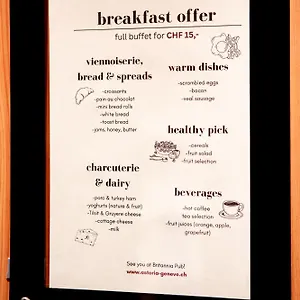 breakfast offer
full buffet for CHF 15,-
viennoiserie,
bread & spreads
-croissants
-pain au chocolat
-mini bread rolls
-white bread
-toast bread
-jams, honey, butter
warm dishes
-scrambled eggs
-bacon
-veal sausage
healthy pick
-cereals
-fruit salad
-fruit selection
charcuterie
& dairy
-pork & turkey ham
-yoghurts (nature & fruit)
-Tilsit & Gruyere cheese
-cottage cheese
-milk
beverages
-hot coffee
tea selection
-fruit juices (orange, apple,
grapefruit)
See you at Britannia Pub!
www.astoria-geneve.ch